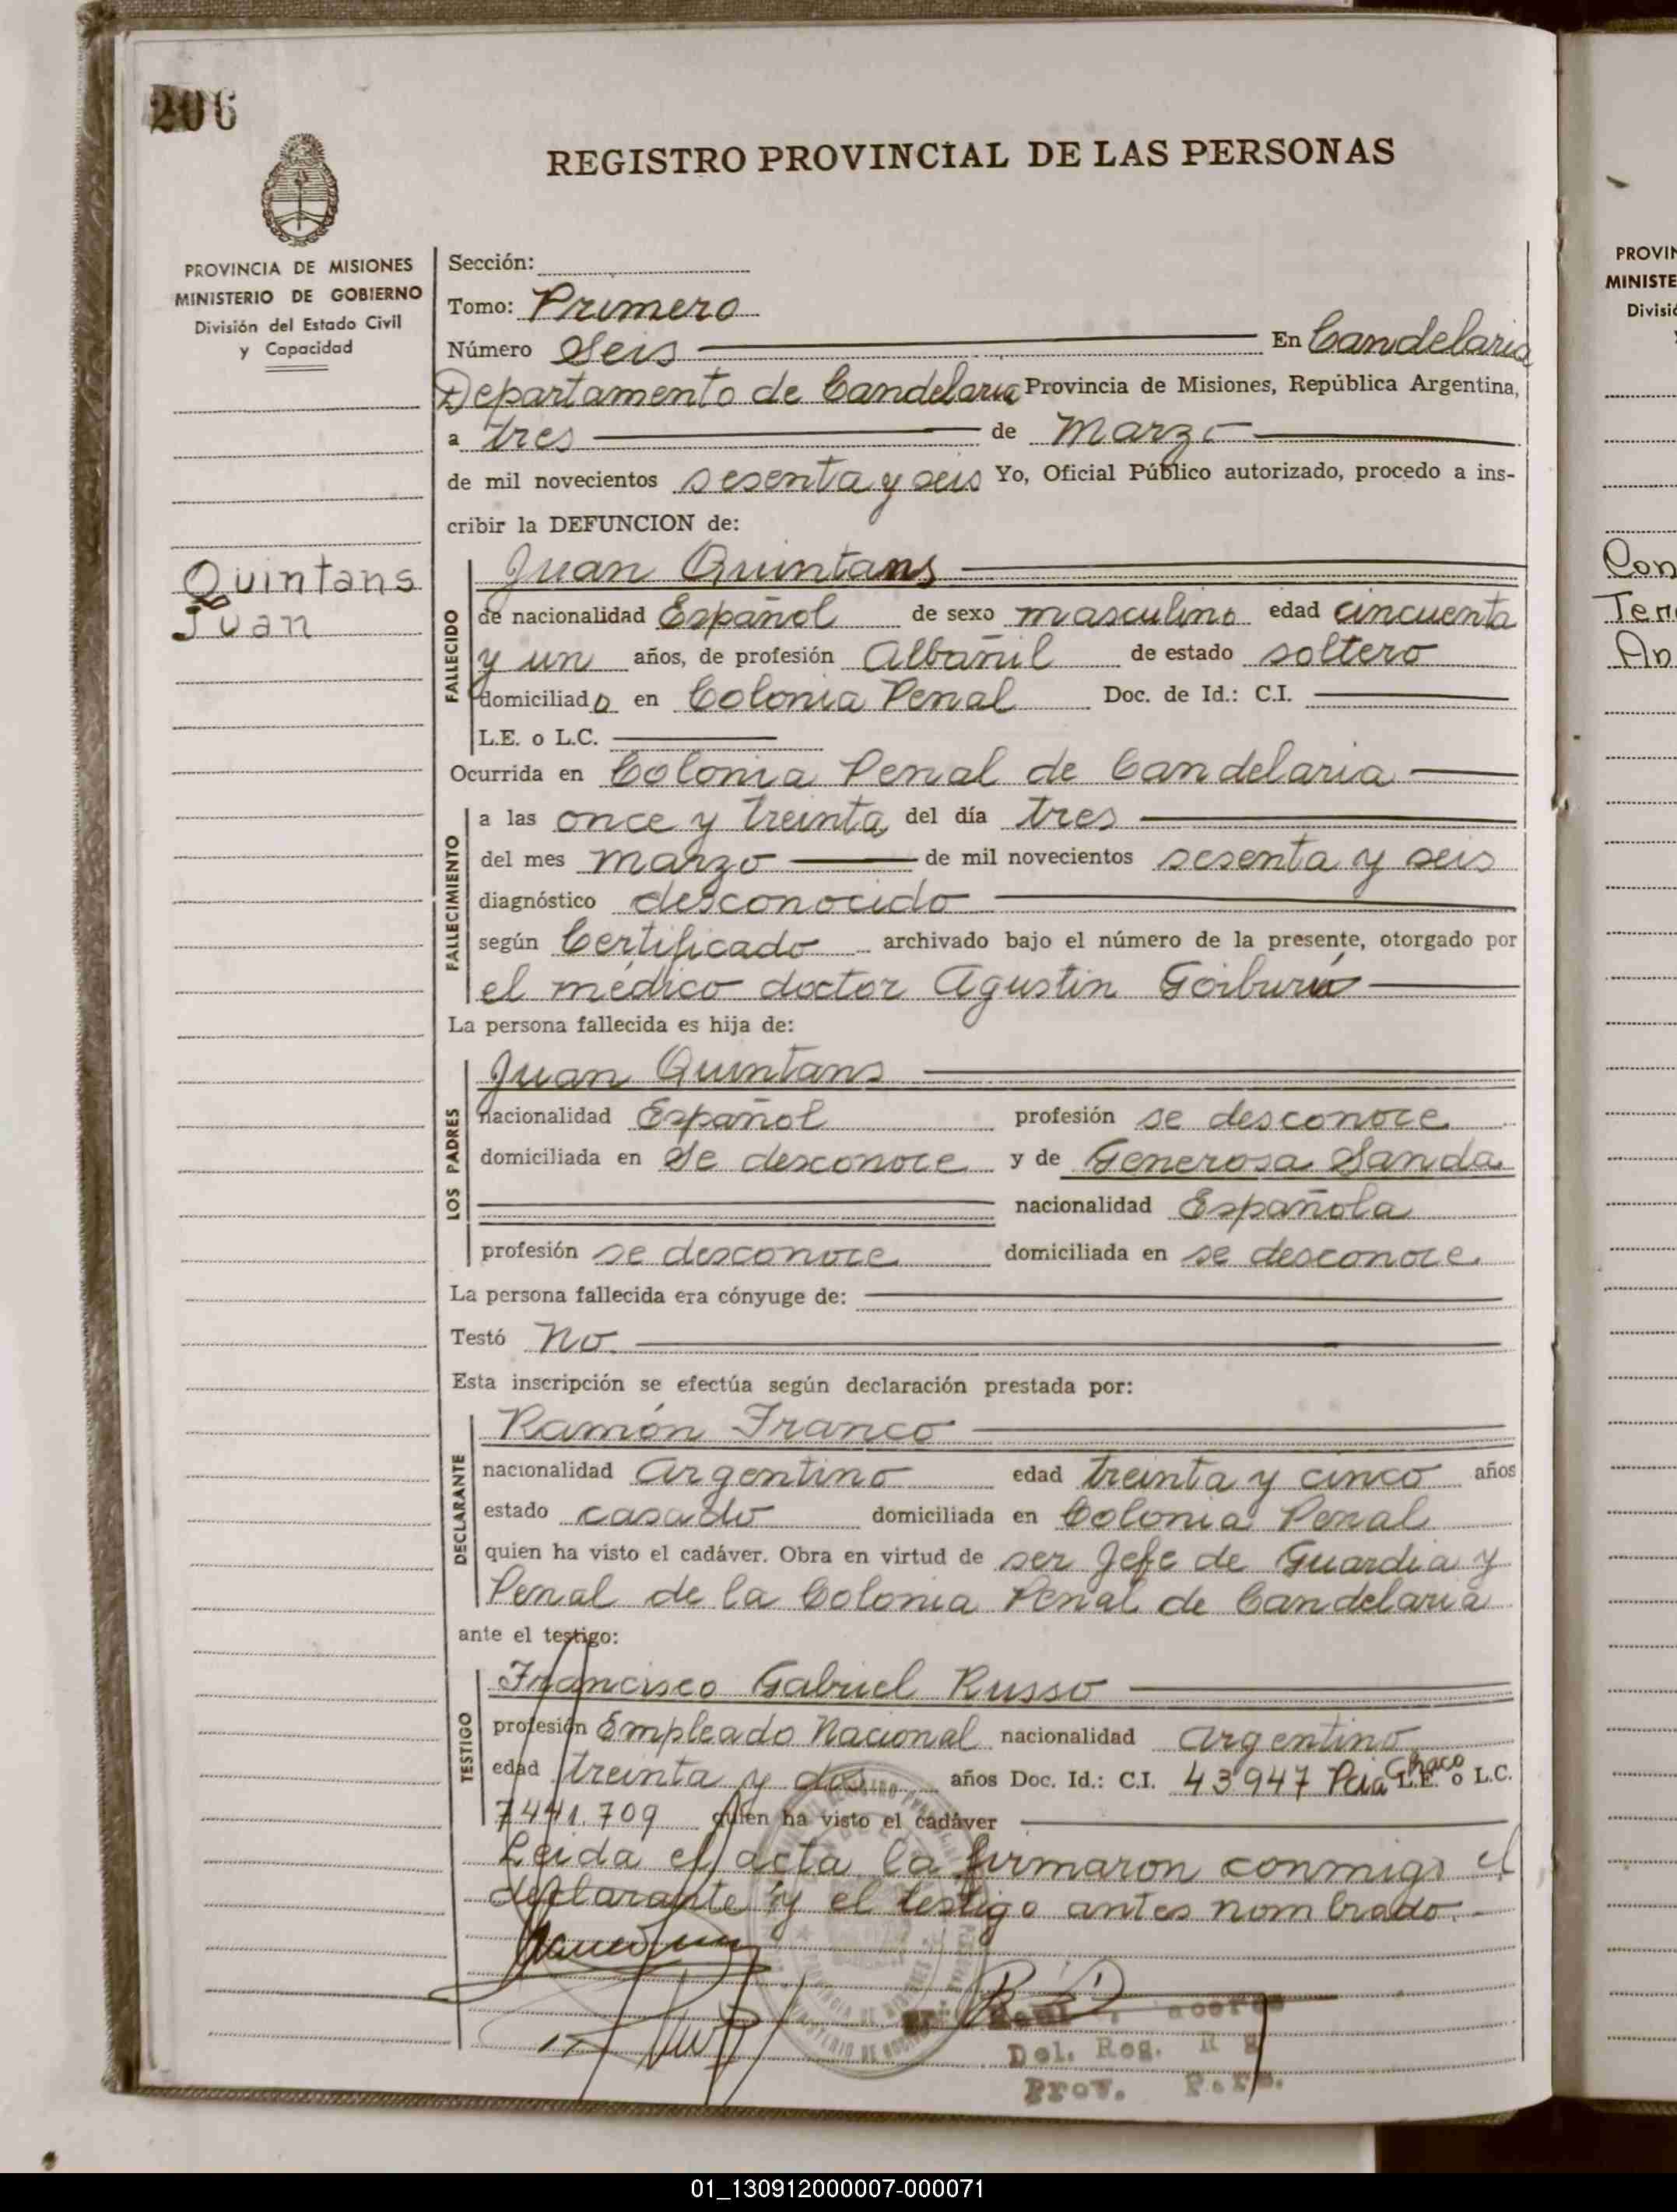 206
REGISTRO PROVINCIAL DE LAS PERSONAS
PROVINCIA DE MISIONES
MINISTERIO DE GOBIERNO
División del Estado Civil
y Capacidad
Quintans
Juan
Sección:
Tomo: Primero
Número Seis En Candelaria
Departamento de Candelaria Provincia de Misiones, República Argentina,
a tres de Marzo
de mil novecientos sesenta y seis Yo, Oficial Público autorizado, procedo a ins-
cribir la DEFUNCION de:
FALLECIDO
Juan Quintans
de nacionalidad Español de sexo masculino edad cincuenta
y un años, de profesión Albañil de estado soltero
domiciliado en Colonia Penal Doc. de Id.: C.I.
L.E. o L.C.
Ocurrida en Colonia Penal de Candelaria
FALLECIMIENTO
a las once y treinta del día tres
del mes marzo de mil novecientos sesenta y seis
diagnóstico desconocido
según Certificado archivado bajo el número de la presente, otorgado por
el médico doctor Agustin Goiburú
La persona fallecida es hija de:
LOS PADRES
Juan Quintans
nacionalidad Español profesión se desconoce
domiciliada en Se desconoce y de Generosa Sanda
nacionalidad Española
profesión se desconoce domiciliada en se desconoce
La persona fallecida era cónyuge de:
Testó No
Esta inscripción se efectúa según declaración prestada por:
DECLARANTE
Ramón Franco
nacionalidad argentino edad treinta y cinco años
estado casado domiciliada en Colonia Penal
quien ha visto el cadáver. Obra en virtud de ser Jefe de Guardia y
Penal de la Colonia Penal de Candelaria
ante el testigo:
TESTIGO
Francisco Gabriel Russo
profesión Empleado Nacional nacionalidad argentino
edad treinta y dos años Doc. Id.: C.I. 43947 Pcia Chaco L.E. o L.C.
7441.709 quien ha visto el cadáver
Leida el acta la firmaron conmigo el
declarante y el testigo antes nombrado.
Del. Reg.
Prov.
PROVIN
MINISTE
Divisió
Con
Ter
An
01_130912000007-000071